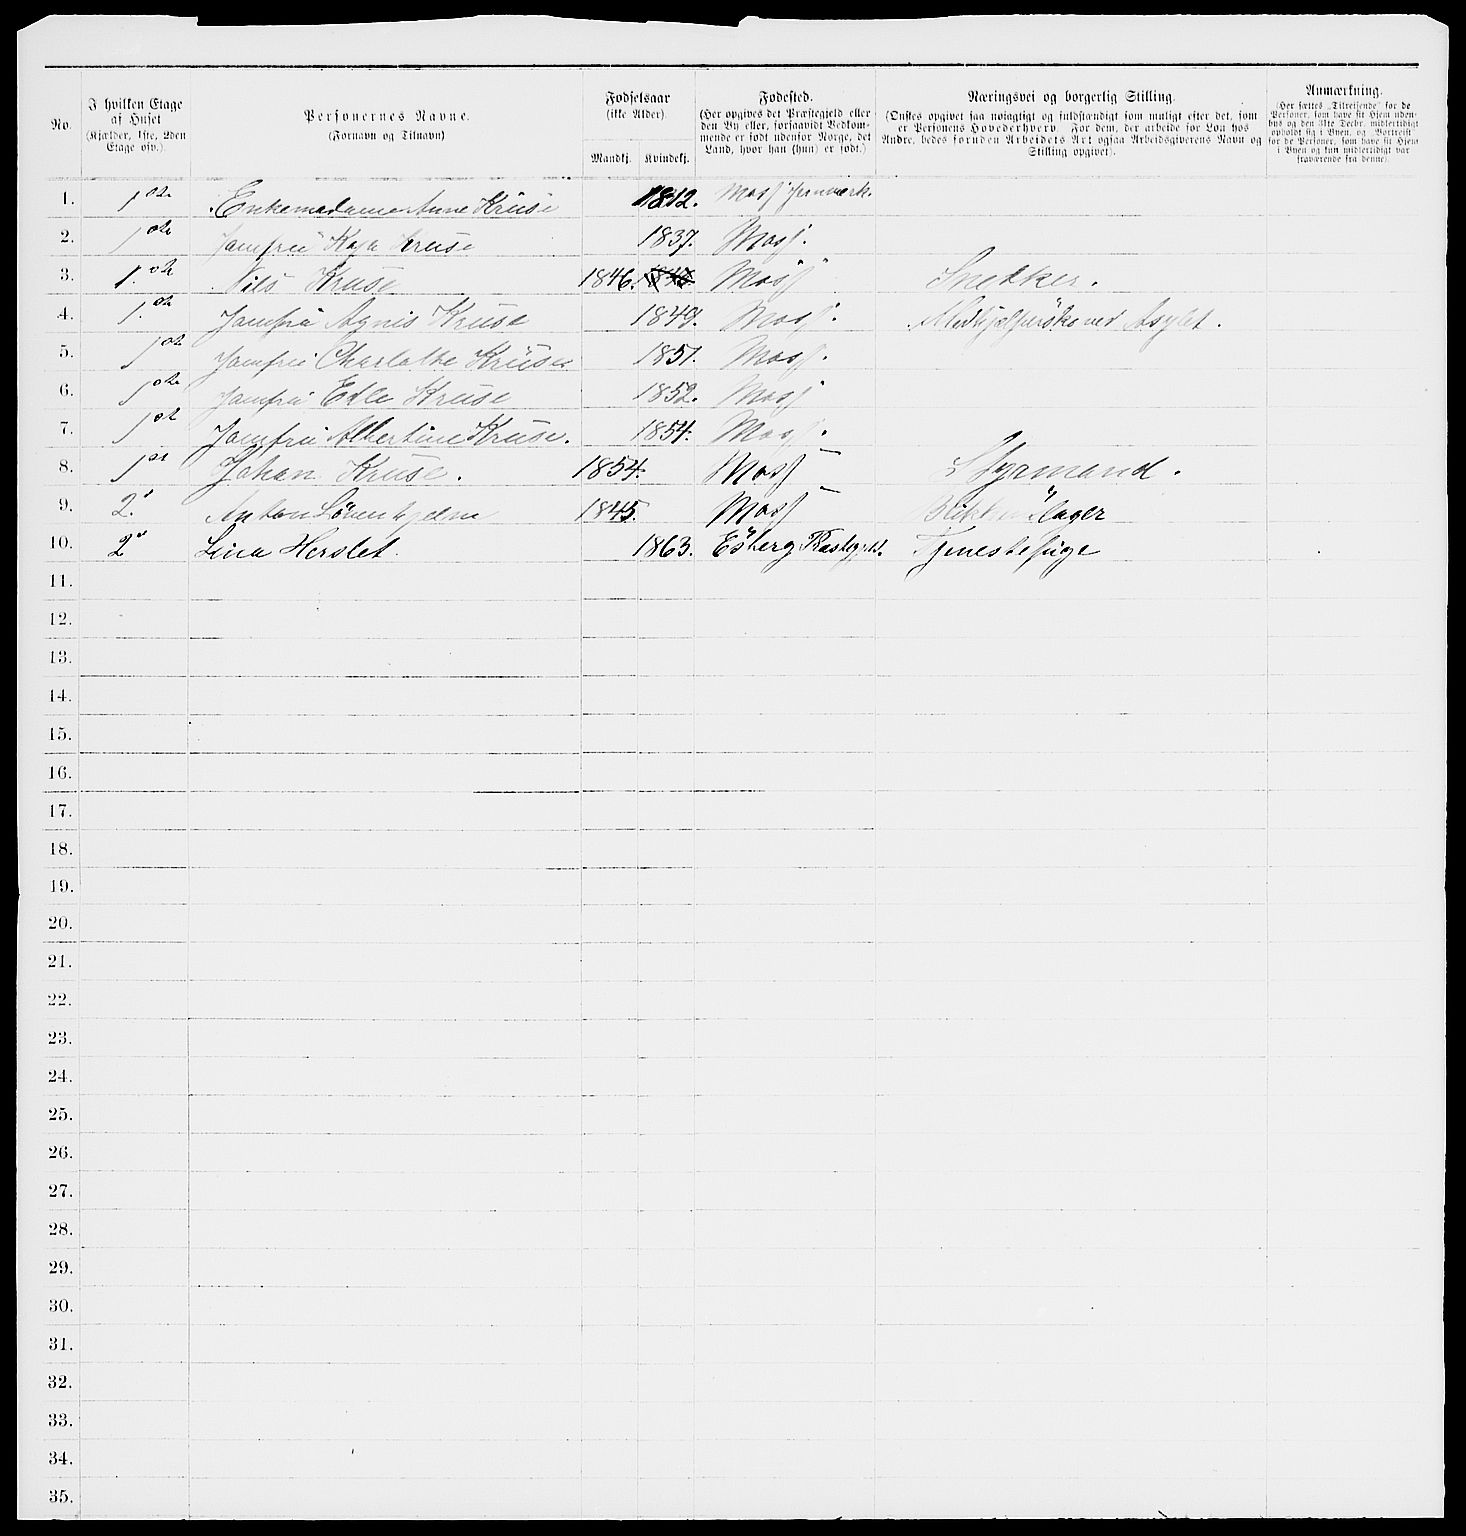 No.
I hvilken Etage af Huset (Kjælder, 1ste, 2den Etage osv.).
Personernes Navne. (Fornavn og Tilnavn)
Fødselsaar (ikke Alder).
Mandkj. Kvindekj.
Fødested. (Her opgives det Præstegjeld eller den By eller, forsaavidt Vedkommende er født udenfor Norge, det Land, hvor han (hun) er født.)
Næringsvei og borgerlig Stilling. (Ønskes opgivet saa nøiagtigt og fuldstændigt som muligt efter det, som er Personens Hovederhverv. For dem, der arbeide for Løn hos Andre, bedes foruden Arbeidets Art ogsaa Arbeidsgiverens Navn og Stilling opgivet).
Anmærkning. (Her sættes „Tilreisende" for de Personer, som have sit Hjem udenbys og den 31te Decbr. midlertidigt opholdt sig i Byen, og „Bortreist" for de Personer, som have sit Hjem i Byen og kun midlertidigt var fraværende fra denne).
1. 1ste Enkemadame Anne Kruse 1812. Moss Jernværk.
2. 1ste Jomfru Kaja Kruse 1837. Moss.
3. 1ste Nils Kruse 1846. Moss Snedker.
4. 1ste Jomfru Agnis Kruse 1849. Moss. ved Asylet.
5. 1ste Jomfru Charlotte Kruse 1851. Moss.
6. 1ste Jomfru Edle Kruse 1852. Moss
7. 1ste Jomfru Albertine Kruse. 1854. Moss.
8. 1ste Johan Kruse. 1854. Moss Styrmand.
9. 2. Anton Lövenhjelm 1845. Moss
10. 2 Lina Herslet. 1863. Tjenestepige
11.
12.
13.
14.
15.
16.
17.
18.
19.
20.
21.
22.
23.
24.
25.
26.
27.
28.
29.
30.
31.
32.
33.
34.
35.